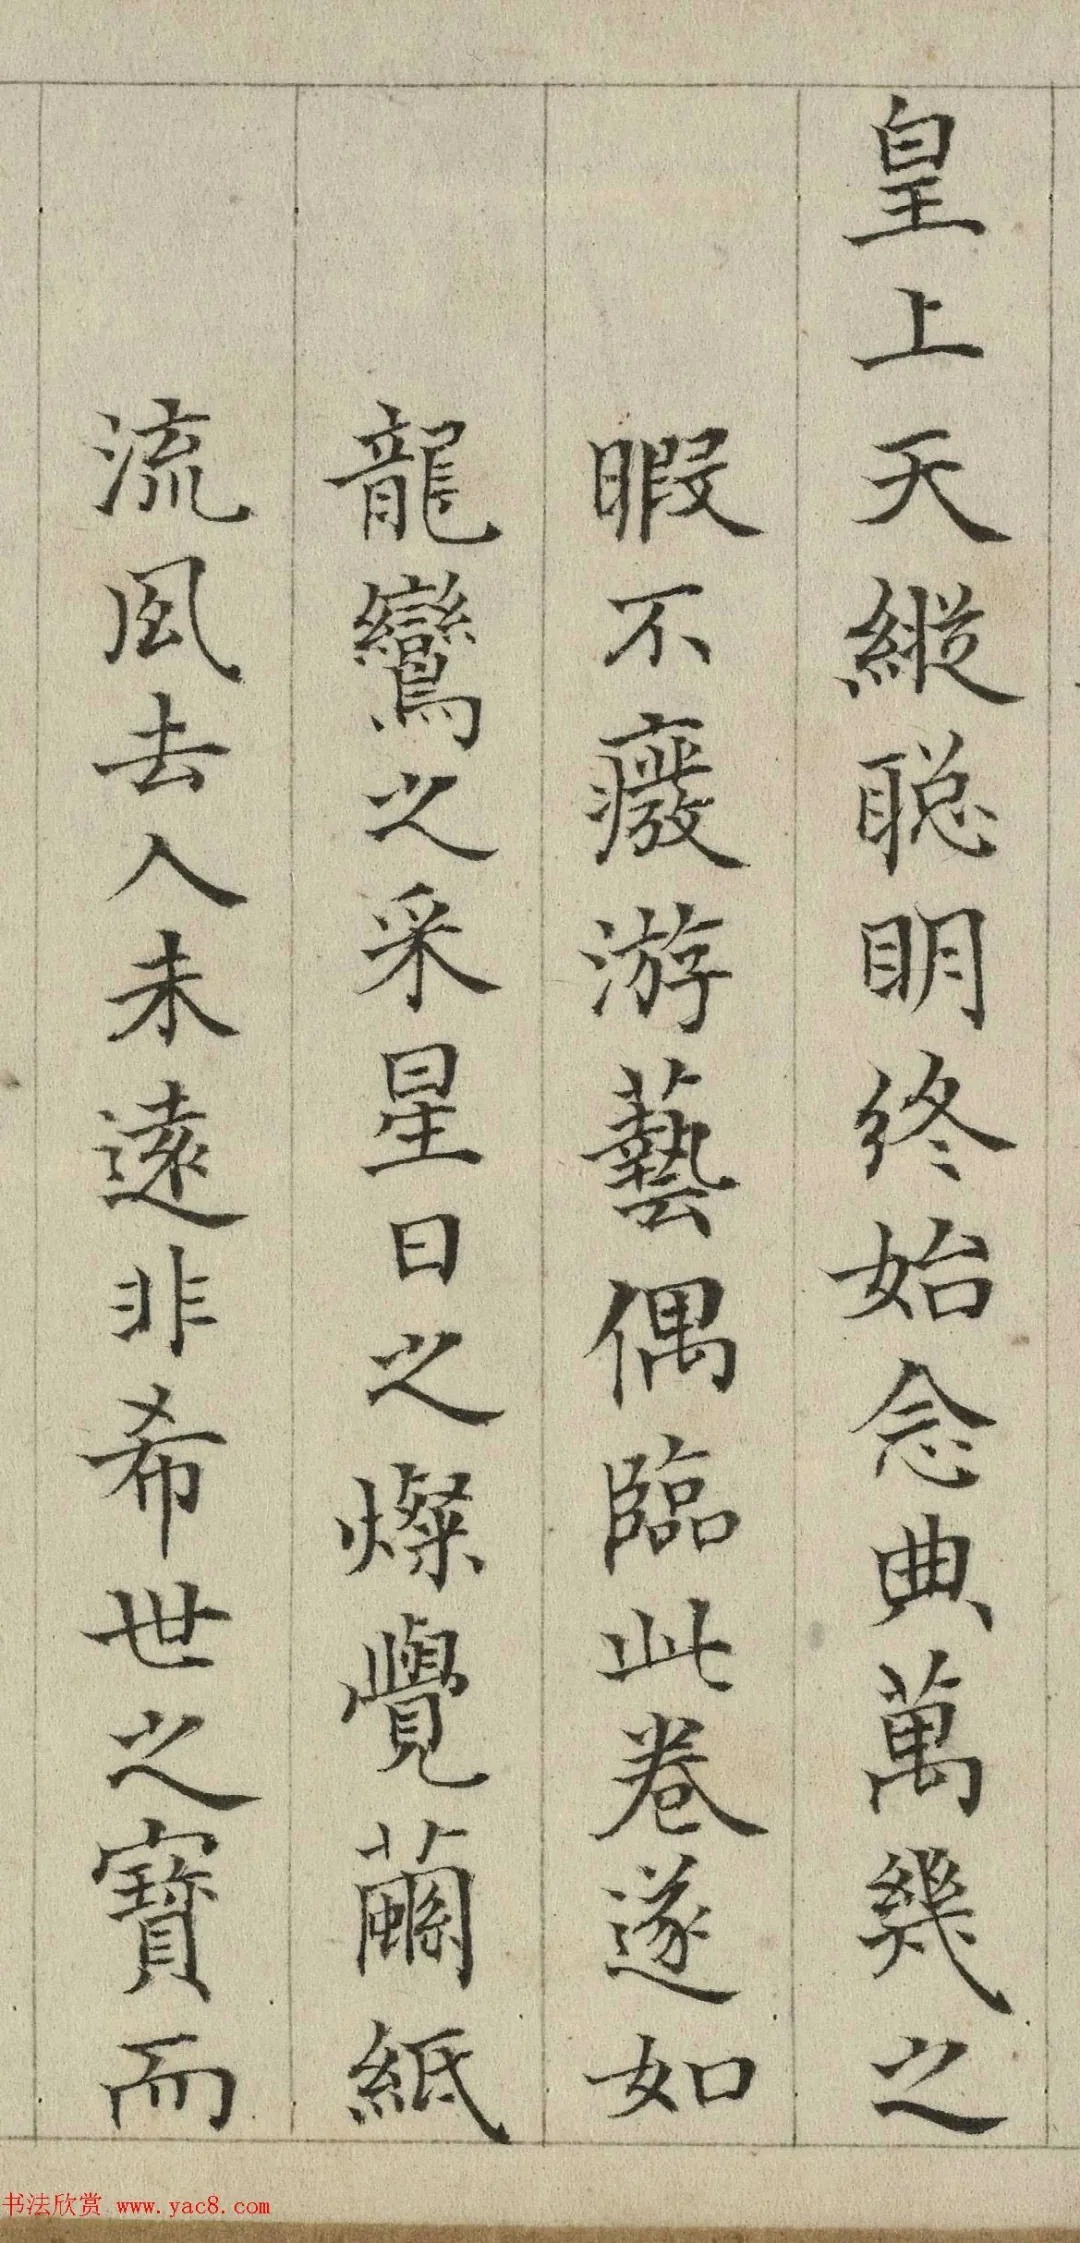 皇上天縱聡明終始念典萬幾之
暇不癈游藝偶臨此卷遂如
龍鸞之采星日之燦覺繭紙
流風去人未遠非希世之寶而
书法欣赏 www.yac8.com